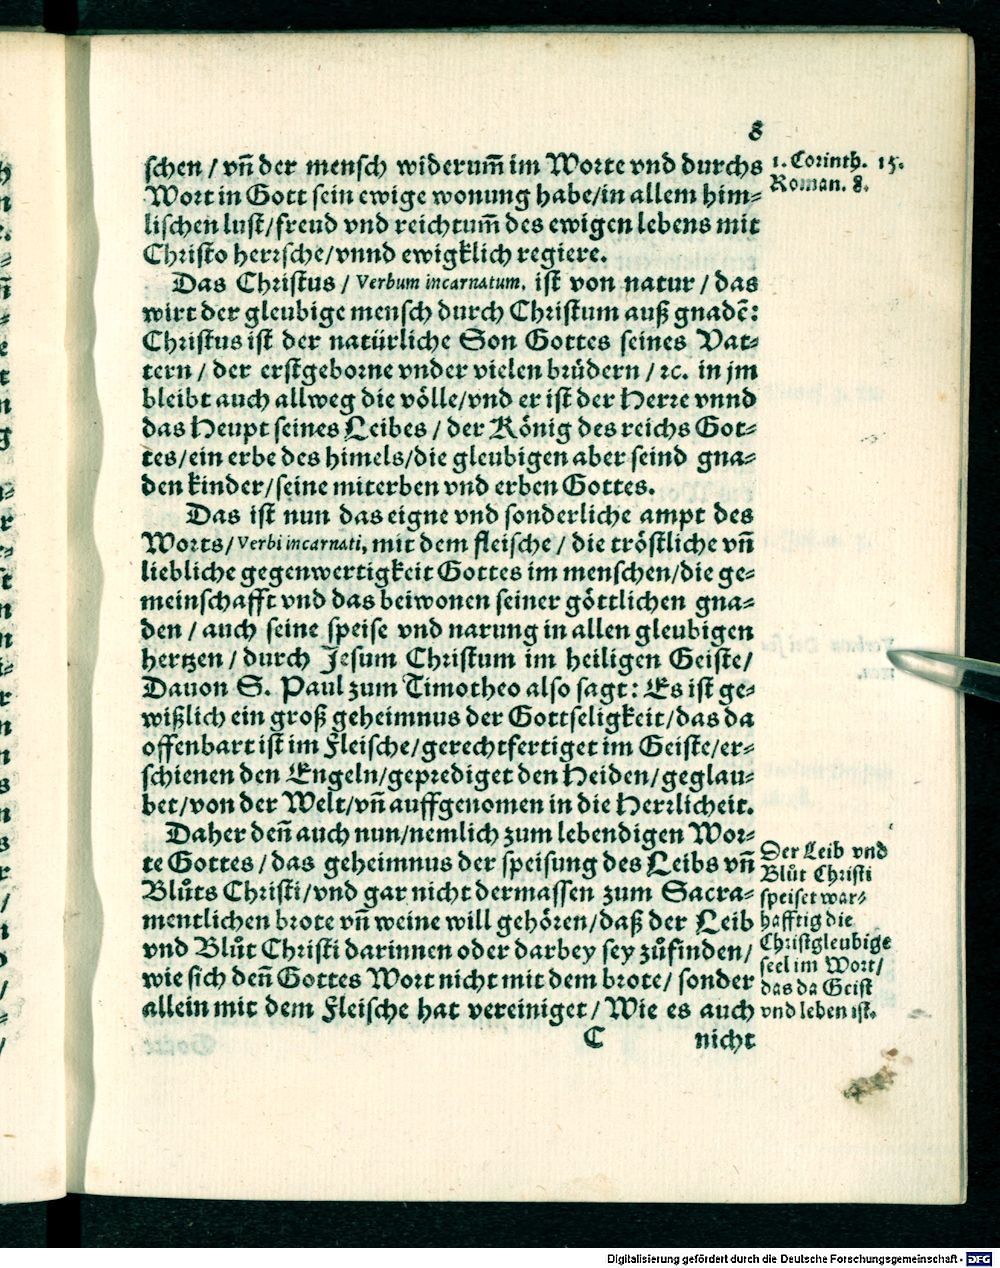 8
schen / vñ der mensch widerum̃ im Worte vnd durchs
Wort in Gott sein ewige wonung habe/in allem him⸗
lischen lust/freud vnd reichtum̃ des ewigen lebens mit
Christo herrsche/vnnd ewigklich regiere.
1. Corinth. 15.
Roman. 8.
Das Christus / Verbum incarnatum, ist von natur / das
wirt der gleubige mensch durch Christum auß gnadẽ:
Christus ist der natürliche Son Gottes seines Vat⸗
tern / der erstgeborne vnder vielen brüdern / ꝛc. in jm
bleibt auch allweg die völle/vnd er ist der Herre vnnd
das Heupt seines Leibes / der König des reichs Got⸗
tes/ein erbe des himels/die gleubigen aber seind gna⸗
den kinder/seine miterben vnd erben Gottes.
Das ist nun das eigne vnd sonderliche ampt des
Worts/Verbi incarnati, mit dem fleische / die tröstliche vñ
liebliche gegenwertigkeit Gottes im menschen/die ge⸗
meinschafft vnd das beiwonen seiner göttlichen gna⸗
den / auch seine speise vnd narung in allen gleubigen
hertzen / durch Jesum Christum im heiligen Geiste/
Dauon S. Paul zum Timotheo also sagt: Es ist ge⸗
wißlich ein groß geheimnus der Gottseligkeit/das da
offenbart ist im Fleische/gerechtfertiget im Geiste/er⸗
schienen den Engeln/geprediget den Heiden/geglau⸗
bet/von der Welt/vñ auffgenomen in die Herrlicheit.
Daher deñ auch nun/nemlich zum lebendigen Wor⸗
te Gottes / das geheimnus der speisung des Leibs vñ
Blůts Christi/vnd gar nicht dermassen zum Sacra⸗
mentlichen brote vñ weine will gehören/daß der Leib
vnd Blůt Christi darinnen oder darbey sey zůfinden/
wie sich deñ Gottes Wort nicht mit dem brote/ sonder
allein mit dem Fleische hat vereiniget / Wie es auch
Der Leib vnd
Blůt Christi
speiset war⸗
hafftig die
Christgleubige
seel im Wort/
das da Geist
vnd leben ist.
C nicht
Digitalisierung gefördert durch die Deutsche Forschungsgemeinschaft - DFG